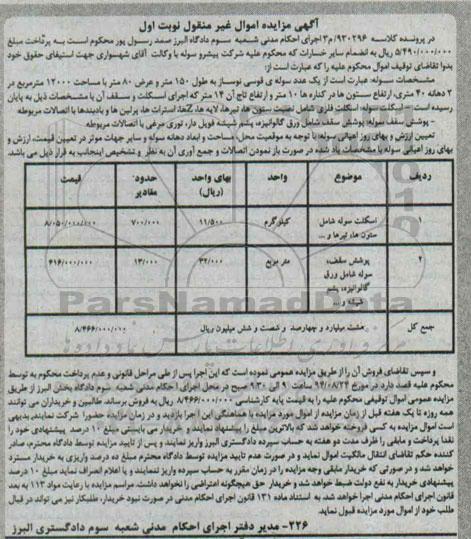 آگهی مزایده اموال غیر منقول نوبت اول
در پرونده کلاسه ۹۳۰۲۹۶/م۳ اجرای احکام مدنی شعبه سوم دادگاه البرز صمد رسول پور محکوم است به پرداخت مبلغ
۵/۴۹۰/۰۰۰/۰۰۰ ریال به انضمام سایر خسارات که محکوم علیه شرکت بیشرو سوله با وکالت آقای شهسواری جهت استیفای حقوق خود
بدوا تقاضای توقیف اموال محکوم علیه را که عبارت است از:
مشخصات سوله: عبارت است از یک عدد سوله ی قوسی نوساز به طول ۱۵۰ متر و عرض ۸۰ متر با مساحت ۱۲۰۰۰ مترمربع در
۲ دهانه ۴۰ متری، ارتفاع ستون ها در کناره ها ۱۰ متر و ارتفاع تاج آن ۱۴ متر که اجرای اسکلت و سقف آن با مشخصات ذیل به پایان
رسیده است - اسکلت سوله: اسکلت فلزی شامل نصب ستون ها، تیر ها، لایه ها، Zها، استرات ها، پرلین ها و بادبندها با اتصالات مربوطه
- پوشش سقف سوله: پوشش سقف شامل ورق گالوانیزه، پشم شیشه فویل دار، توری مرغی با اتصالات مربوطه
تعیین ارزش و بهای روز اعیانی سوله: با توجه به موقعیت محل، مساحت و ابعاد دهانه سوله و سایر جهات موثر در تعیین قیمت، ارزش و
بهای روز اعیانی سوله با مشخصات یاد شده در صورت باز نمودن اتصالات و جمع آوری آن به نظر و تشخیص اینجانب به قرار ذیل می باشد.
ردیف موضوع واحد بهای واحد (ریال) حدود مقادیر قیمت
۱ اسکلت سوله شامل ستون ها، تیرها و ... کیلوگرم ۱۱/۵۰۰ ۷۰۰/۰۰۰ ۸/۰۵۰/۰۰۰/۰۰۰
۲ پوشش سقف، سوله شامل ورق گالوانیزه، پشم شیشه و ... متر مربع ۳۲/۰۰۰ ۱۳/۰۰۰ ۴۱۶/۰۰۰/۰۰۰
جمع کل هشت میلیارد و چهارصد و شصت و شش میلیون ریال ۸/۴۶۶/۰۰۰/۰۰۰
ParsNamadData
و سپس تقاضای فروش آن را از طریق مزایده عمومی نموده است که این اجرا پس از طی مراحل قانونی و عدم پرداخت محکوم به توسط
محکوم علیه قصد دارد در مورخ ۹۴/۰۸/۲۴ ساعت ۹ الی ۹:۳۰ صبح در محل اجرای احکام مدنی شعبه سوم دادگاه بخش البرز از طریق
مزایده عمومی اموال توقیفی محکوم علیه را به قیمت پایه کارشناسی ۸/۴۶۶/۰۰۰/۰۰۰ ریال به فروش برساند. طالبین و خریداران می توانند
همه روزه تا یک هفته قبل از زمان مزایده از اموال مورد مزایده با هماهنگی این اجرا بازدید و در زمان مزایده حضورا شرکت نمایند. بدیهی
است اموال مزایده به کسی فروخته خواهد شد که بالاترین مبلغ را پیشنهاد نمایند و خریدار می بایستی مبلغ ۱۰ درصد پیشنهادی خود را
نقدا پرداخت و مابقی را ظرف مدت دو هفته به حساب سپرده دادگستری البرز واریز نمایند و پس از تایید مزایده توسط دادگاه محترم، صادر
کننده حکم تقاضای انتقال مالکیت اموال نماید و در صورت عدم تایید مزایده توسط دادگاه محترم مبلغ ده درصد واریزی به خریدار مسترد
خواهد شد و در صورتی که خریدار مابقی وجه مزایده را در زمان مقرر به حساب سپرده واریز ننمایند و یا اعلام انصراف نماید مبلغ ۱۰ درصد
پیشنهادی خریدار به نفع دولت ضبط خواهد شد و خریدار حق هیچگونه اعتراضی را نخواهد داشت. مراسم مزایده با رعایت مواد ۱۱۳ به بعد
قانون اجرای احکام مدنی اجرا خواهد شد. به استناد ماده ۱۳۱ قانون اجرای احکام مدنی در صورت نبود خریدار، طلبکار نیز می تواند در قبال
طلب خود از اموال مورد مزایده قبول نماید.
۲۲۶- مدیر دفتر اجرای احکام مدنی شعبه سوم دادگستری البرز